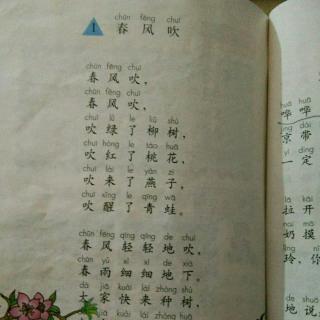 chūn fēng chuī
1 春风吹
chūn fēng chuī
春风吹，
chūn fēng chuī
春风吹，
chuī lǜ le liǔ shù
吹绿了柳树，
chuī hóng le táo huā
吹红了桃花，
chuī lái le yàn zi
吹来了燕子，
chuī xǐng le qīng wā
吹醒了青蛙。
chūn fēng qīng qīng de chuī
春风轻轻地吹，
chūn yǔ xì xì de xià
春雨细细地下。
dà jiā kuài lái zhòng shù
大家快来种树，
huā huā
哗哗
jīng dài
京带
yī dìng
一定
lā kāi
拉开
奶摸
玲，你
地说